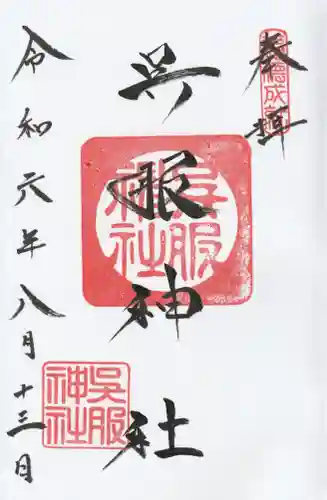 奉拝
呉服神社
呉服神社
令和六年八月十三日
呉服神社